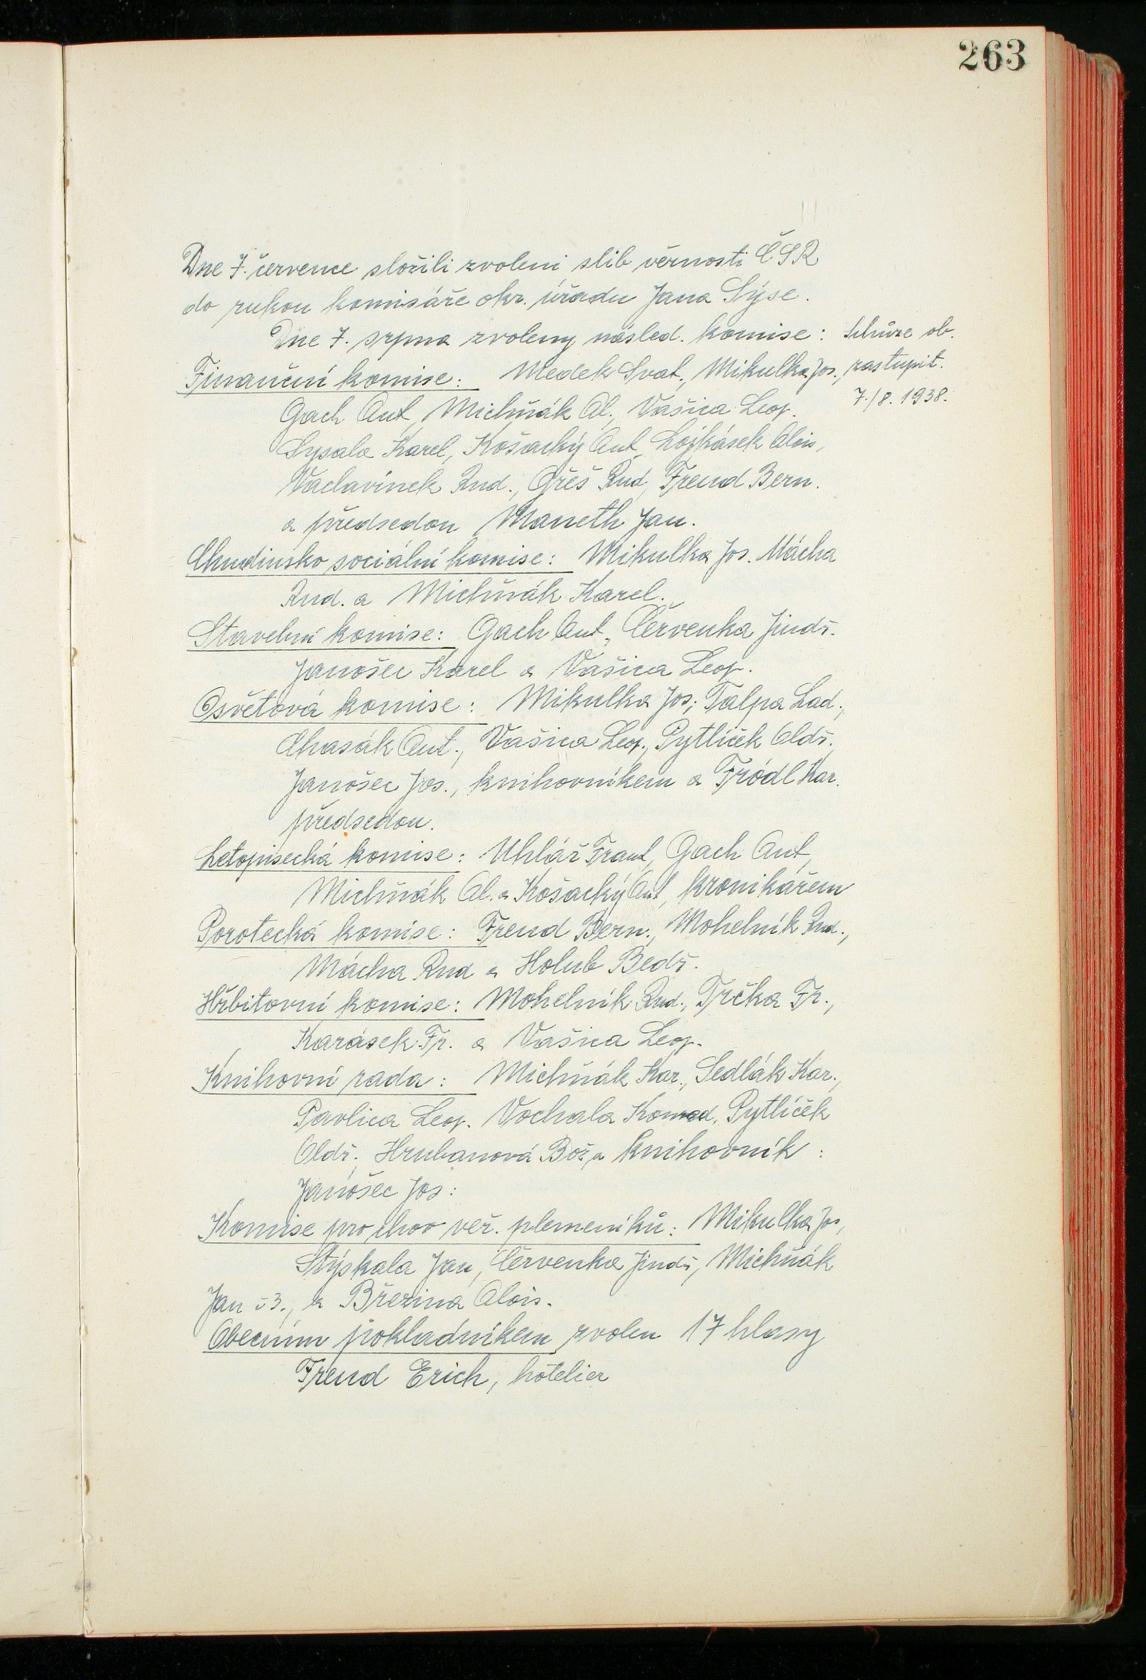 263
Dne 7. července složili zvolení slib věrnosti ČSR
do rukou komisáře okr. úřadu Jana Sýse.
Dne 7. srpna zvoleny násled. komise:
Schůze ob.
zastupit.
7./8. 1938.
Finanční komise: Medek Svat., Mikulka Jos.,
Gach Ant., Michňák Al., Vašica Leop.
Sypala Karel, Košacký Ant., Lojkásek Alois,
Václavínek Rud., Greš Rud., Freud Bern.
a předsedou Maneth Jan.
Chudinsko sociální komise: Mikulka Jos. Mácha
Rud. a Michňák Karel.
Stavební komise: Gach Ant., Červenka Jindř.
Janošec Karel a Vašica Leop.
Osvětová komise: Mikulka Jos., Talpa Lad.,
Chasák Ant., Vašica Leop., Pytlíček Oldř.,
Janošec Jos., knihovníkem a Fródl Kar.
předsedou.
Letopisecká komise: Uhlář Frant., Gach Ant.,
Michňák Al. a Košacký Ant., kronikářem
Porotecká komise: Freud Bern., Mohelník Rud.,
Mácha Rud a Holub Bedř.
Hřbitovní komise: Mohelník Rud., Trčka Fr.,
Karásek Fr. a Vašica Leop.
Knihovní rada: Michňák Kar., Sedlák Kar.,
Pavlica Leop. Vochala Konrad, Pytlíček
Oldř., Hrubanová Bož. a knihovník:
Janošec Jos:
Komise pro chov veř. plemeníků: Mikulka Jos.,
Stýskala Jan, Červenka Jindř., Michňák
Jan č 3., a Březina Alois.
Obecním pokladníkem zvolen 17 hlasy
Freud Erich, hotelier